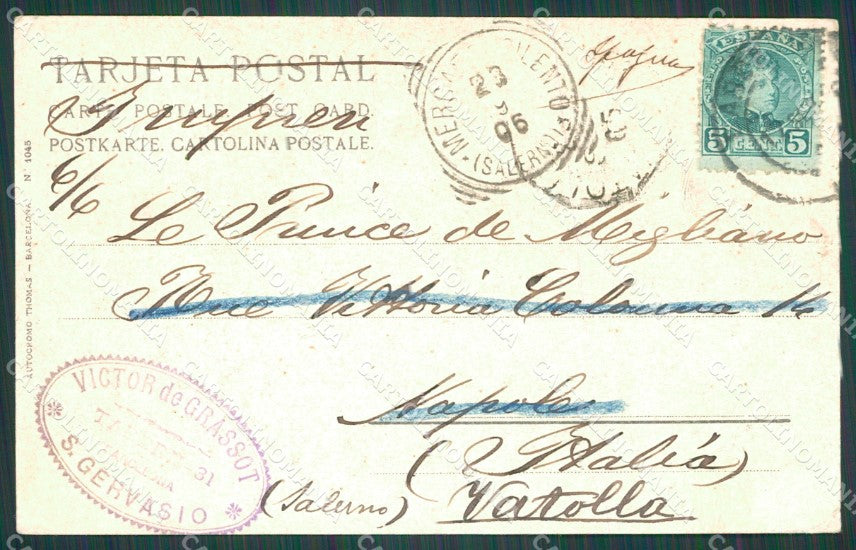 TARJETA POSTAL
CARTE POSTALE. POST CARD.
POSTKARTE. CARTOLINA POSTALE.
ESPAÑA
5 CENT. 5
MERCATO CILENTO
23
06
(SALERNO)
Le Prince de Migliano
Rue Vittoria Colonna 14
Napole
(Italia)
(Salerno) Vatolla
VICTOR de GRASSOT
31
BARCELONA
S. GERVASIO
AUTOCROMO THOMAS — BARCELONA N 1045
CARTOLINOMANIA